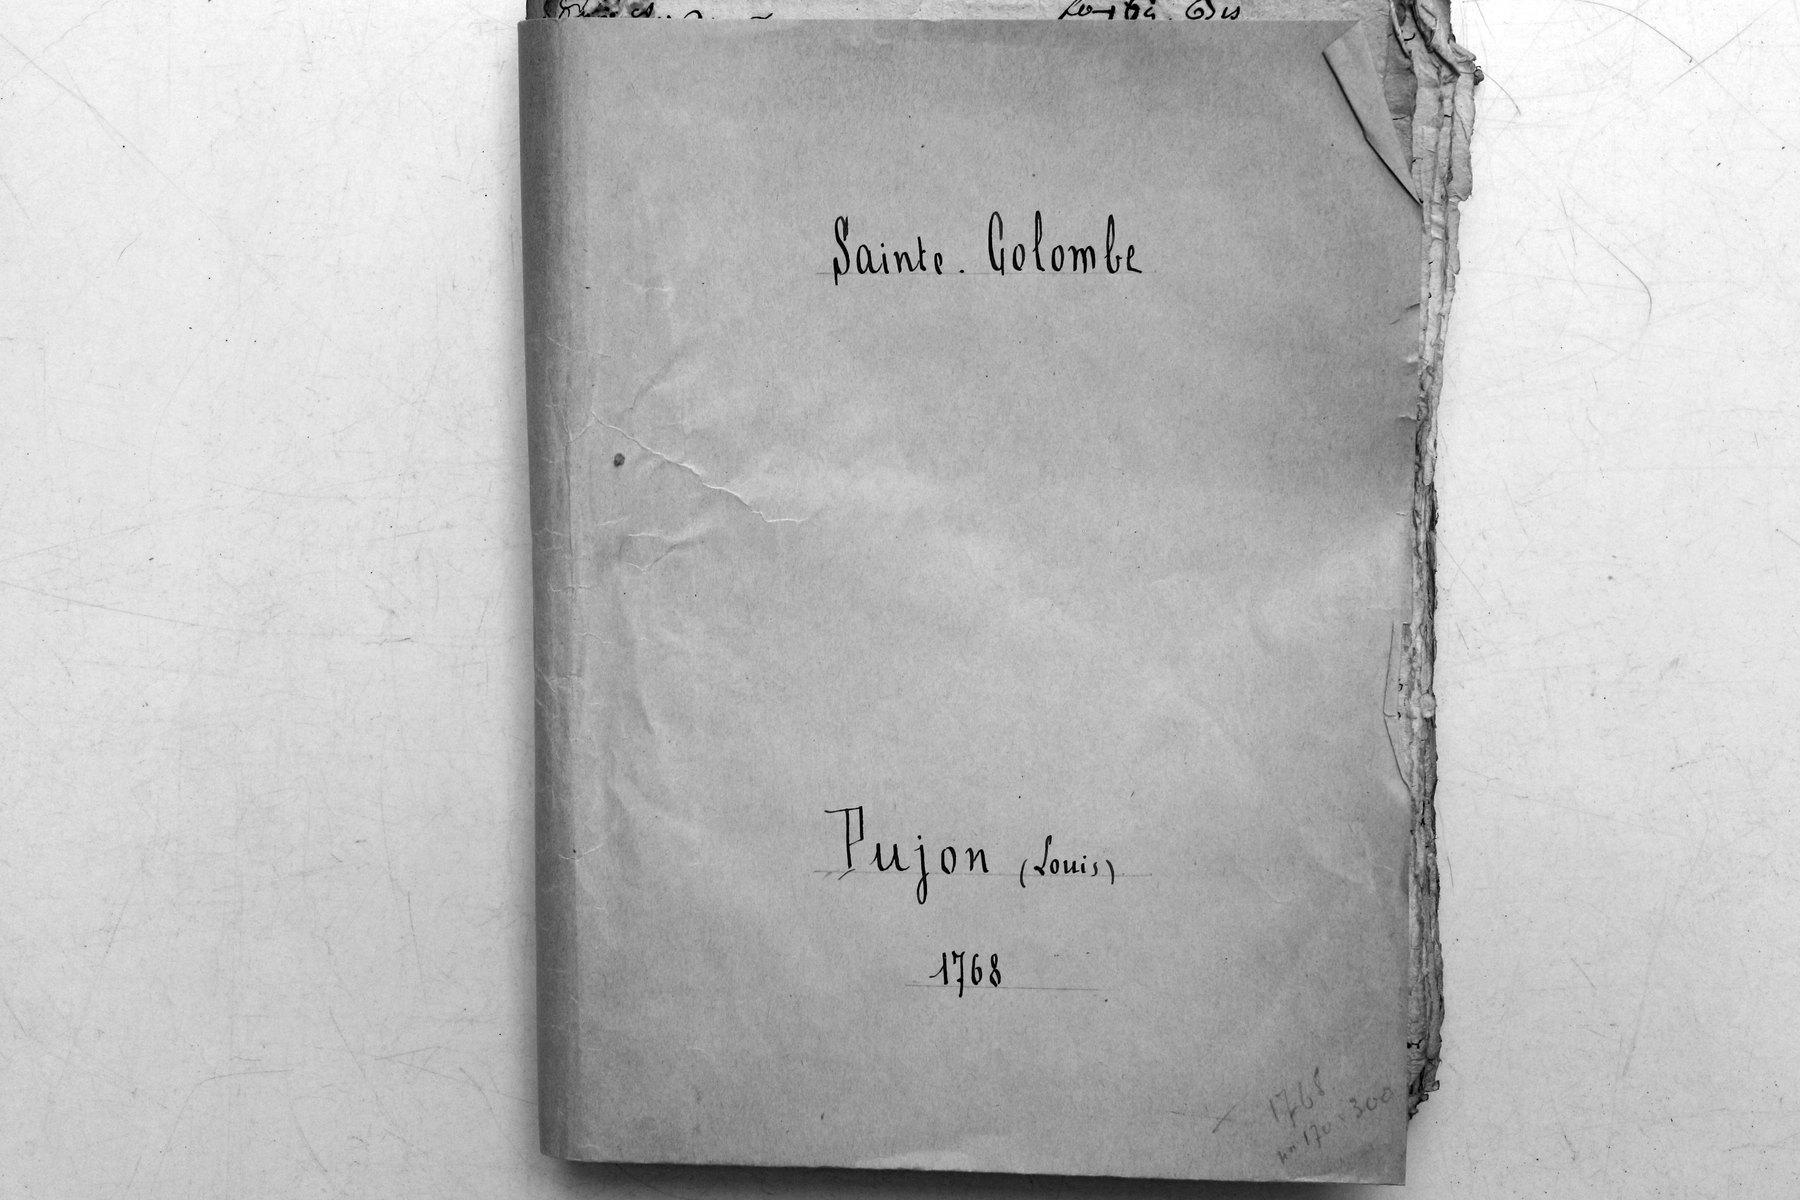 Sainte. Colombe
Pujon (Louis)
1768
1768
170 300